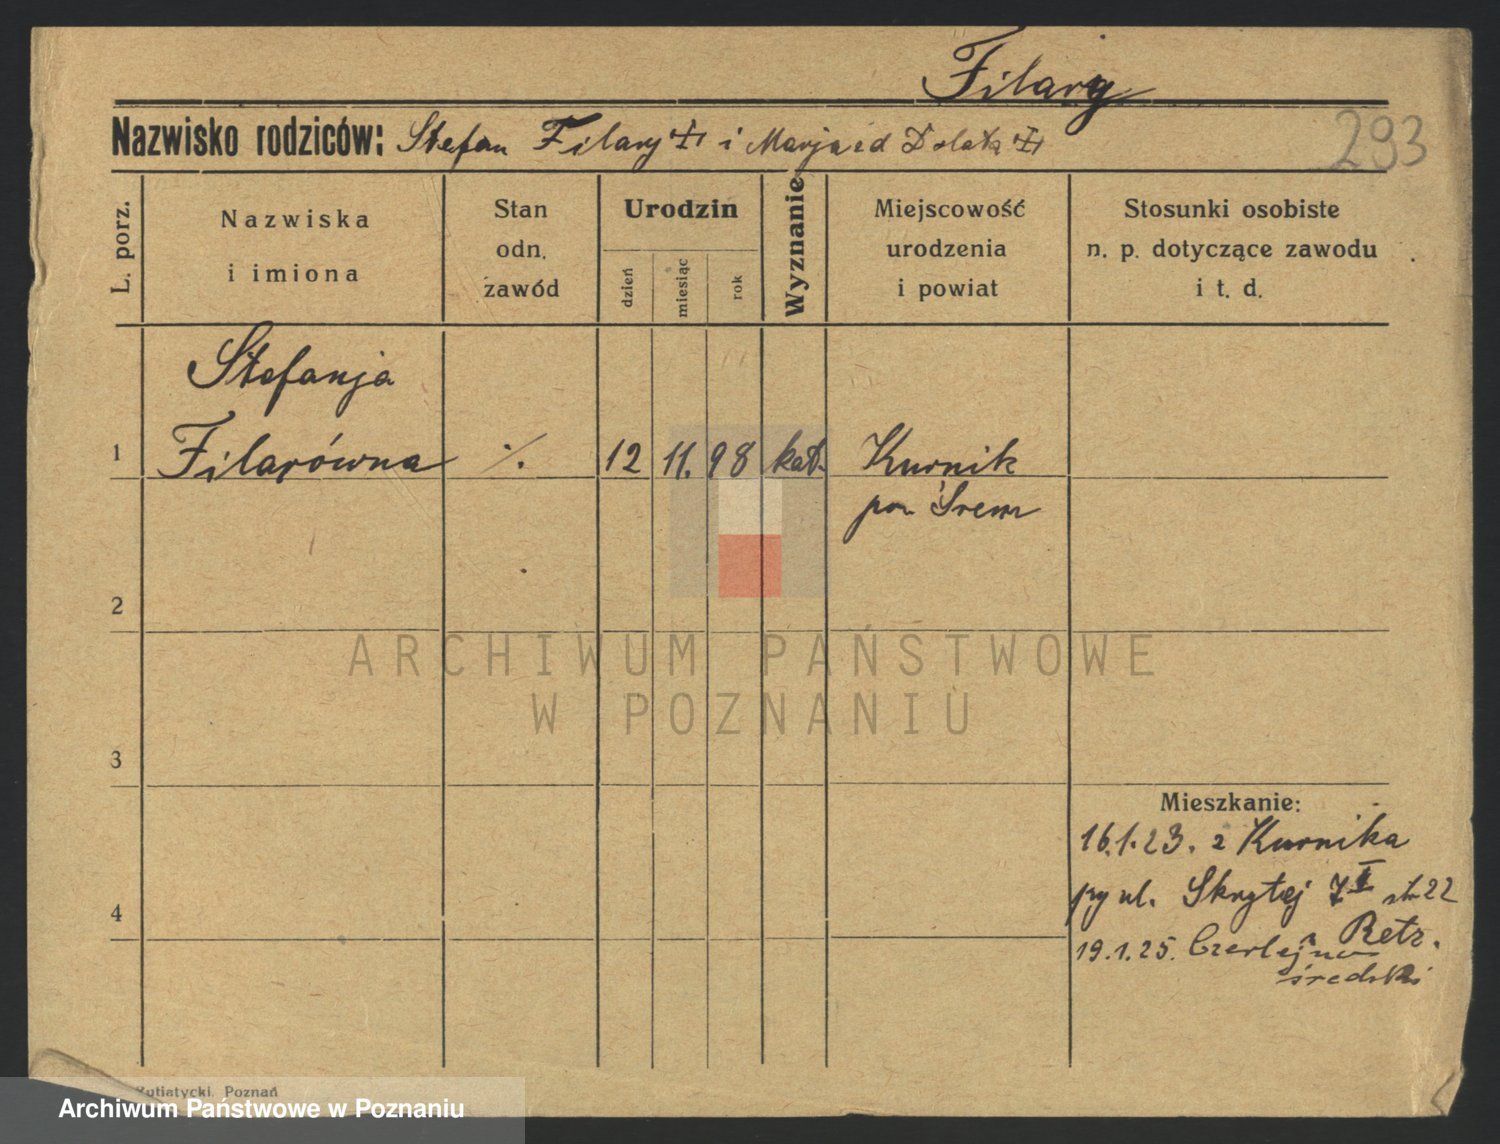 Filary
293
Nazwisko rodziców: Stefan Filary i Marja zd Dolata
L. porz.
Nazwiska
i imiona
Stan
odn.
zawód
Urodzin
dzień
miesiąc
rok
Wyznanie
Miejscowość
urodzenia
i powiat
Stosunki osobiste
n. p. dotyczące zawodu
i t. d.
Stefanja
1 Filarówna ·/. 12 11. 98 kat. Kurnik
pow Śrem
2
3
4
Mieszkanie:
16.1.23. z Kurnika
przy ul. Skrytej 7 I str 22
u Retz.
19.1.25. Czerlejno
średzki
ARCHIWUM PAŃSTWOWE
W POZNANIU
Poznań
Archiwum Państwowe w Poznaniu